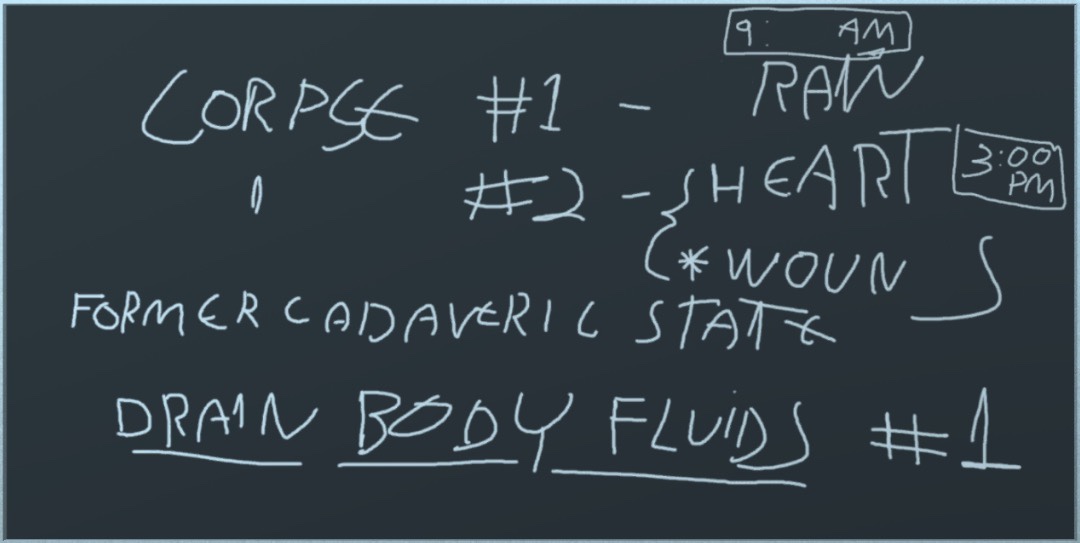 9: AM
CORPSE #1 - RAIN
#2 - { HEART 3:00 PM
* WOUN
FORMER CADAVERIC STATE
DRAIN BODY FLUIDS #1